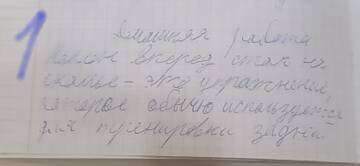 1
Домашняя работа
Наклон вперед стоя на
скамье - это упражнение,
которое обычно используется
для тренировки задней